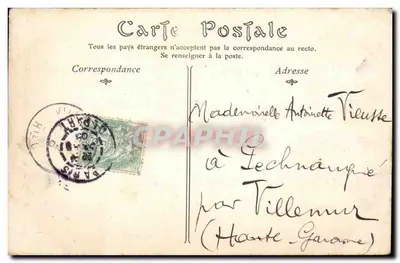 Carte Postale
Tous les pays étrangers n'acceptent pas la correspondance au recto.
Se renseigner à la poste.
Correspondance
Adresse
Mademoiselle Antoinette
à
par Villemur
(Haute-Garonne)
PARIS
DEPART
CPHRTR